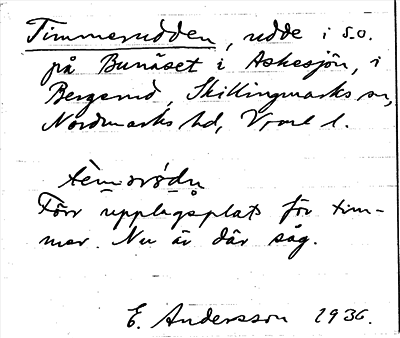 Timmerudden, udde i s.o.
på Bunäset i Askesjön, i
Bergerud, Skillingmarks sn,
Nordmarks hd, Vrml l.
Förr uppläggsplats för tim-
mer. Nu är där såg.
E. Andersson 1936.